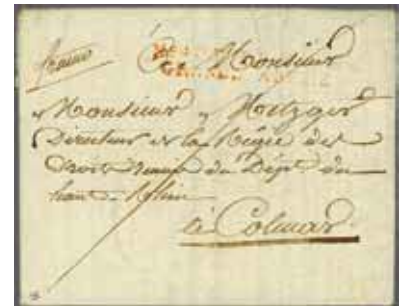 franco
A Monsieur
Monsieur Metzger
Directeur de la Régie des
Droits réunis du Dépt. du
haut-Rhin
à Colmar